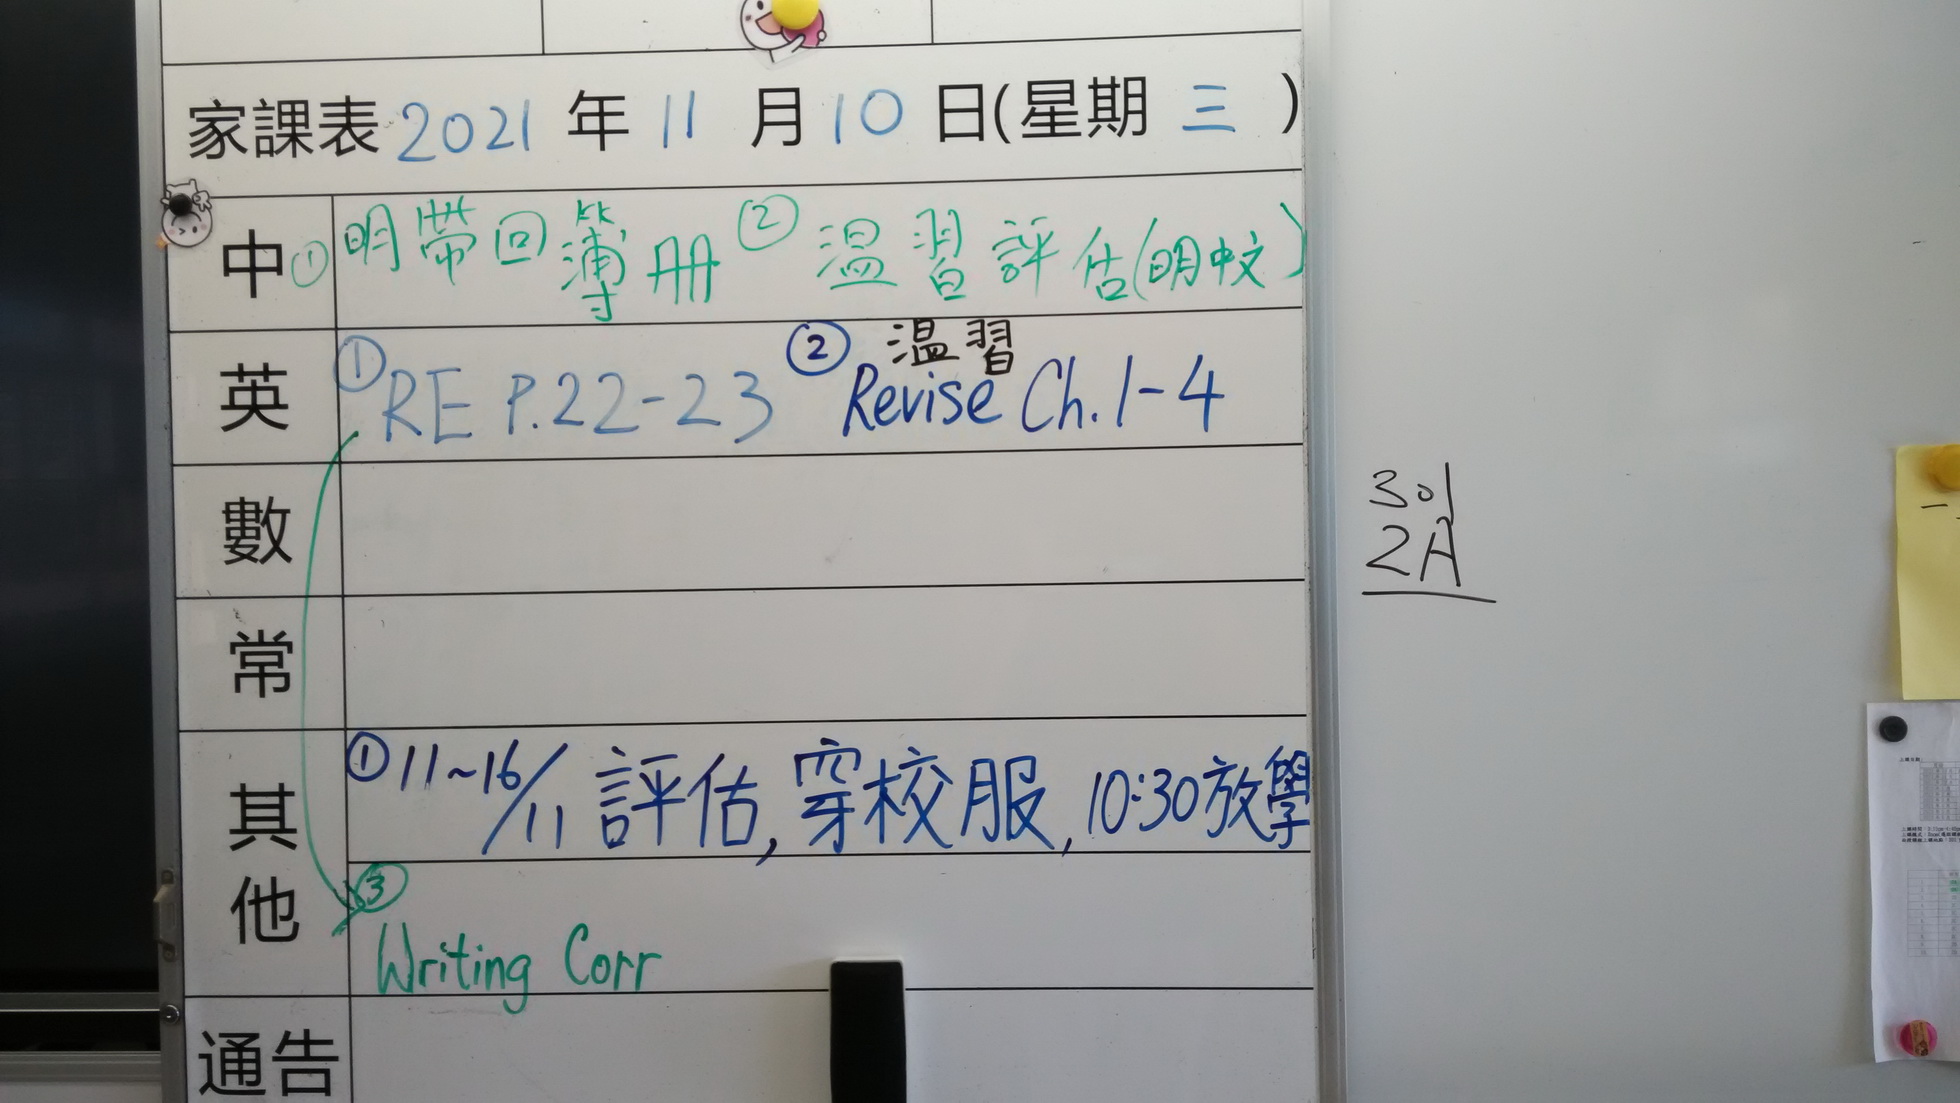 家課表 2021 年 11 月 10 日(星期 三 )
中 ① 明帶回簿冊 ② 温習評估(明中文)
英 ① RE P.22-23 ② 温習 Revise Ch.1-4
數
常
其他 ① 11~16/11 評估, 穿校服, 10:30放學
③ Writing Corr
通告
301
2A